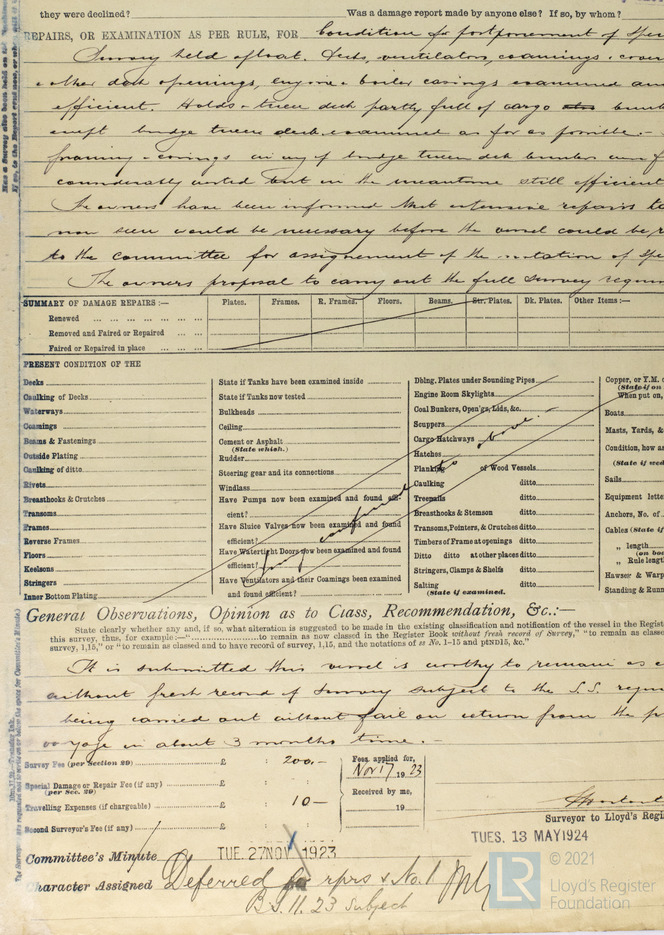 they were declined? Was a damage report made by anyone else? If so, by whom?
REPAIRS, OR EXAMINATION AS PER RULE, FOR Condition & postponement of Spe
Survey held afloat. Decks, ventilators, coamings, cover
& other deck openings, engine & boiler casings examined an
efficient. Holds & tween deck partly full of cargo
except bridge tween deck examined as far as possible.-
framing & casings in way of bridge tween deck bunkers
considerably wasted but in the meantime still efficient
The owners have been informed that extensive repairs
now seen would be necessary before the vessel could be
to the committee for assignment of the notation of Spe
The owners proposal to carry out the full survey requir
SUMMARY OF DAMAGE REPAIRS :— Plates. Frames. R. Frames. Floors. Beams. Str. Plates. Dk. Plates. Other Items :—
Renewed
Removed and Faired or Repaired
Faired or Repaired in place
PRESENT CONDITION OF THE
Decks
Caulking of Decks
Waterways
Coamings
Beams & Fastenings
Outside Plating
Caulking of ditto
Rivets
Breasthooks & Crutches
Transoms
Frames
Reverse Frames
Floors
Keelsons
Stringers
Inner Bottom Plating
State if Tanks have been examined inside
State if Tanks now tested
Bulkheads
Ceiling
Cement or Asphalt
(State which.)
Rudder
Steering gear and its connections
Windlass
Have Pumps now been examined and found effi-
cient?
Have Sluice Valves now been examined and found
efficient?
Have Watertight Doors now been examined and found
efficient?
Have Ventilators and their Coamings been examined
and found efficient?
Dblng. Plates under Sounding Pipes
Engine Room Skylights
Coal Bunkers, Open'gs, Lids, &c.
Scuppers
Cargo Hatchways
Hatches
Planking of Wood Vessels
Caulking ditto
Treenails ditto
Breasthooks & Stemson ditto
Transoms, Pointers, & Crutches ditto
Timbers of Frame at openings ditto
Ditto ditto at other places ditto
Stringers, Clamps & Shelfs ditto
Salting ditto
(State if examined.
Copper, or Y.M. o
(State if on
When put on,
Boats
Masts, Yards, &
Condition, how as
(State if wed
Sails
Equipment lette
Anchors, No. of
Cables (State if
„ length
(on boa
„ Rule leng
Hawser & Warp
Standing & Runn
above.-
General Observations, Opinion as to Class, Recommendation, &c.:—
State clearly whether any and, if so, what alteration is suggested to be made in the existing classification and notification of the vessel in the Regist
this survey, thus, for example:—"..........to remain as now classed in the Register Book without fresh record of Survey," "to remain as classe
survey, 1,15," or "to remain as classed and to have record of survey, 1,15, and the notations of ss No. 1-15 and ptND15, &c."
It is submitted this vessel is worthy to remain as c
without fresh record of survey subject to the S.S. requ
being carried out without fail on return from the pr
voyage in about 3 months time.-
Survey Fee (per Section 29) £ : 200.—
Special Damage or Repair Fee (if any) £ :
(per Sec. 29)
Travelling Expenses (if chargeable) £ : 10—
Second Surveyor's Fee (if any) £ :
Fees applied for,
Nov 17 19 23
Received by me,
19
Surveyor to Lloyd's Regi
TUES. 13 MAY 1924
Committee's Minute TUE. 27 NOV 1923
Character Assigned Deferred for rprs & No. 1
B.S. 11.23 Subject
LR © 2021
Lloyd's Register
Foundation